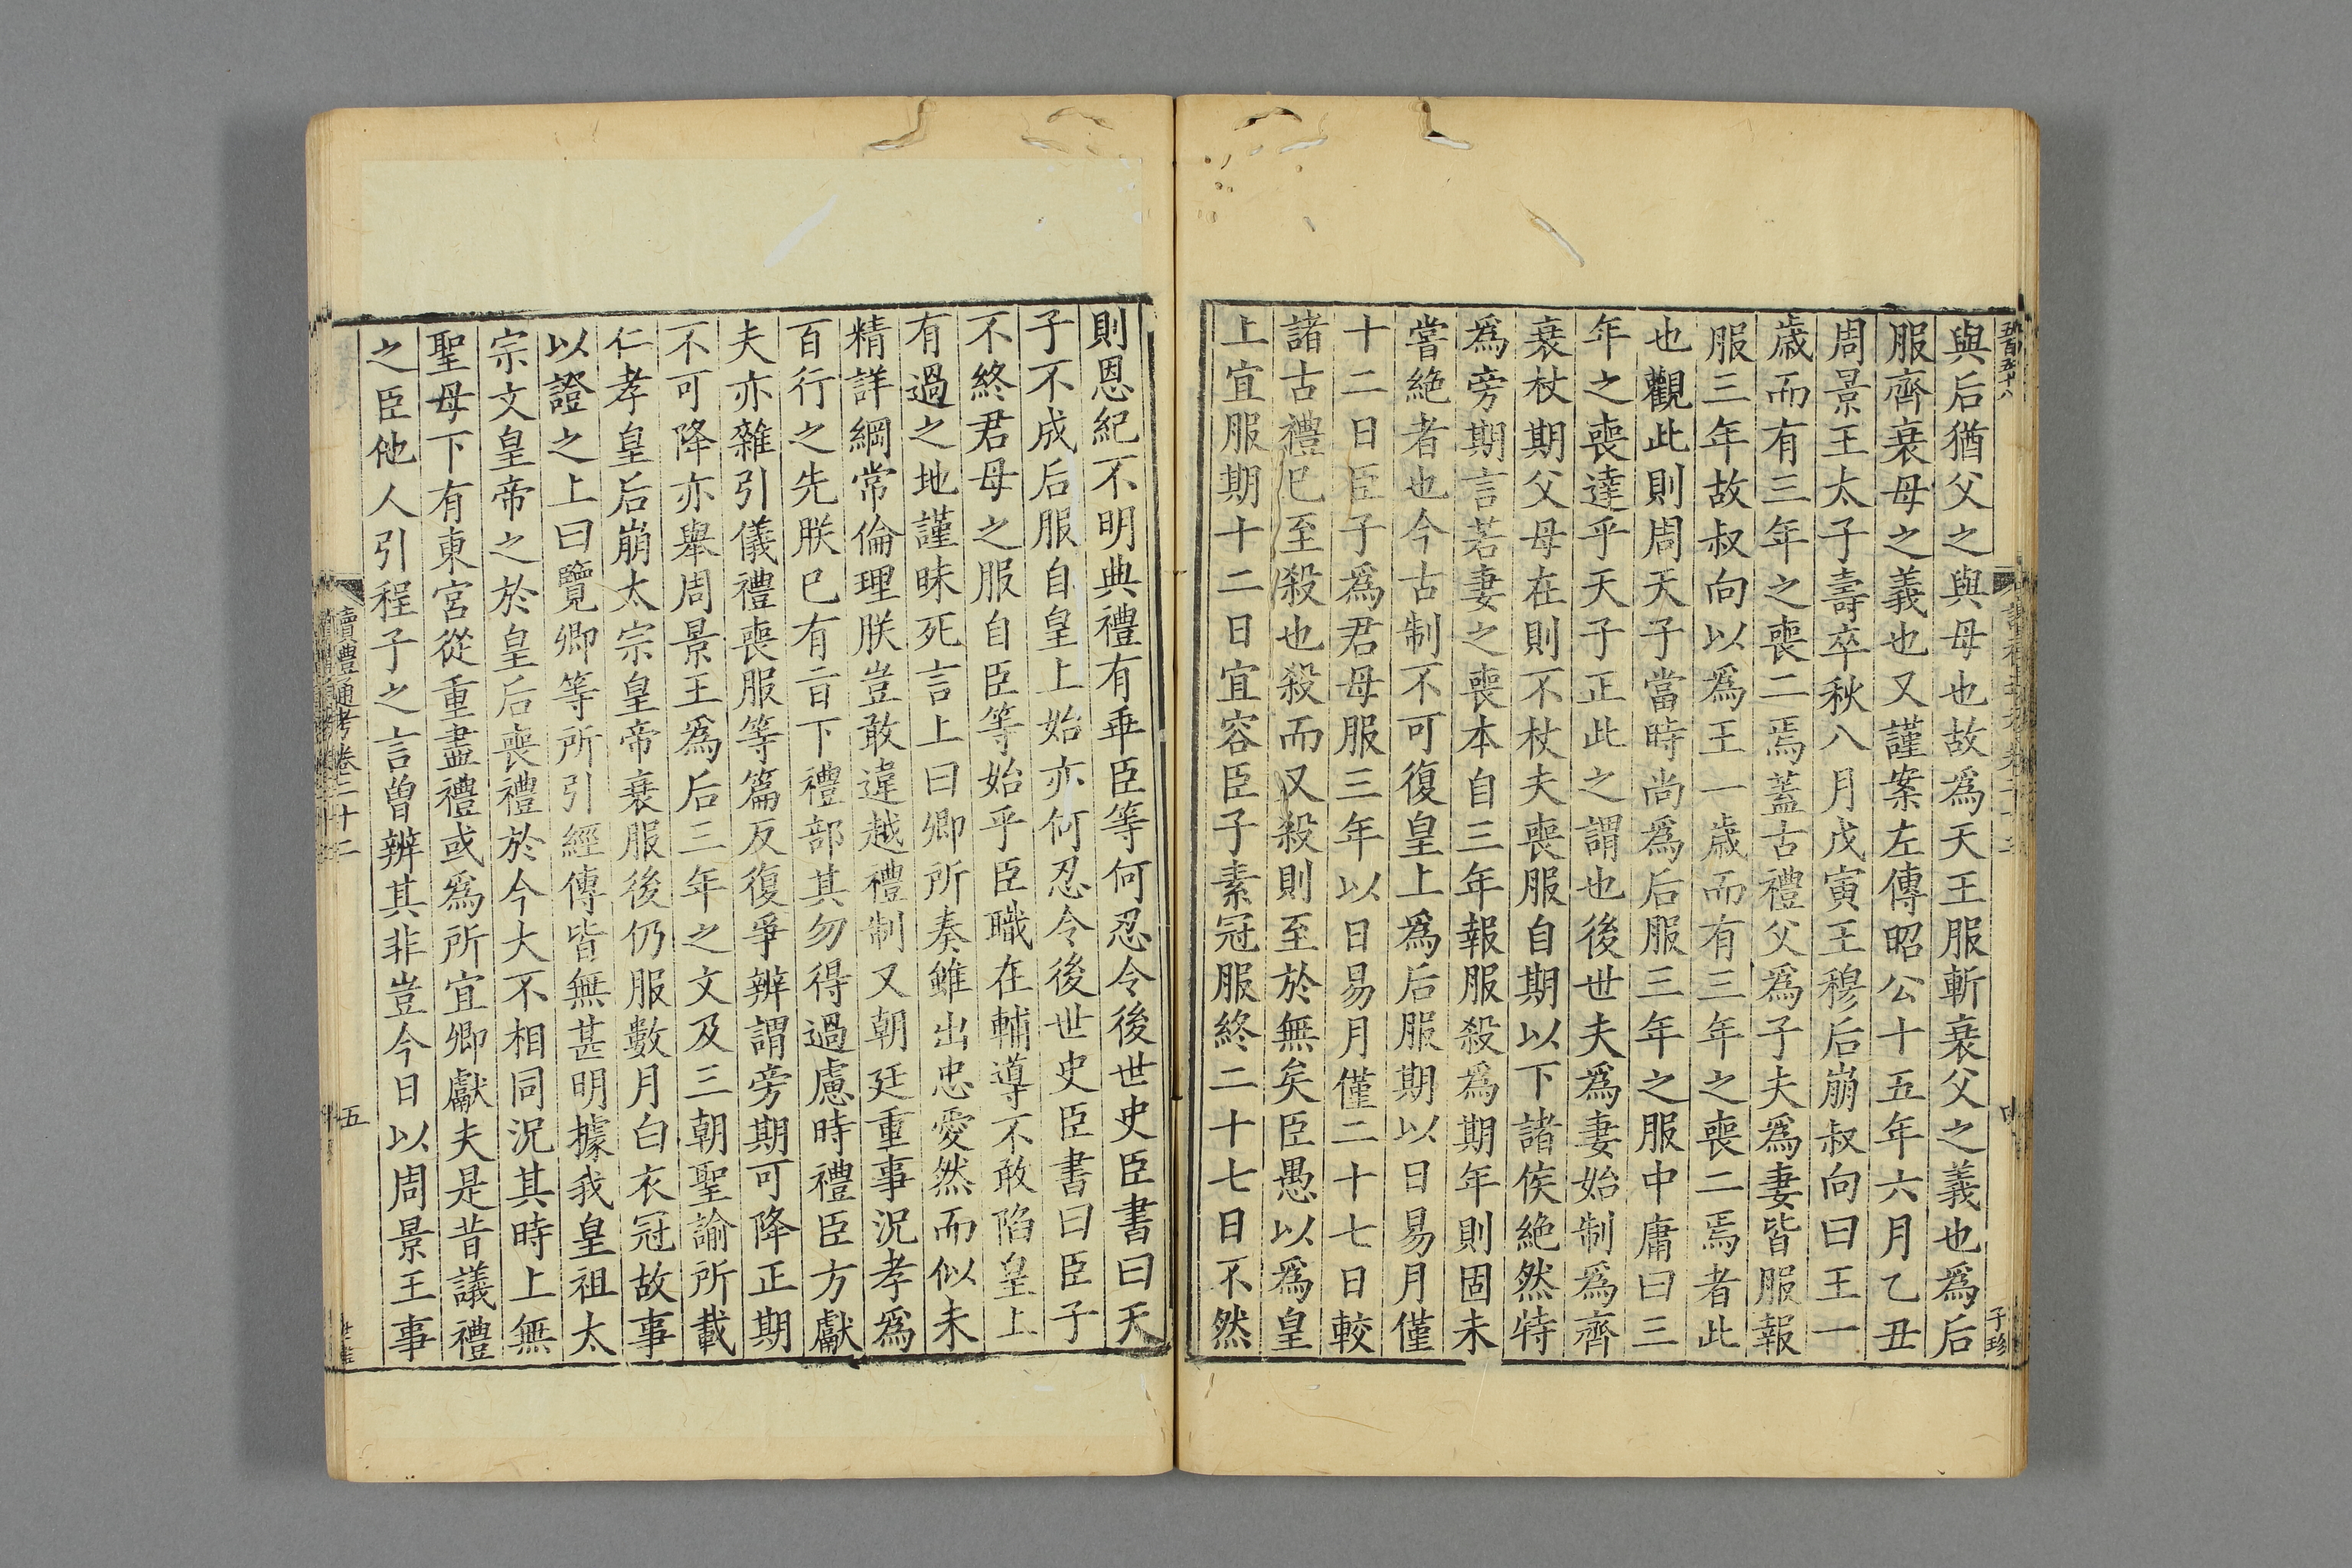 與后猶父之與母也故爲天王服斬衰父之義也爲后
服齊衰母之義也又謹案左傳昭公十五年六月乙丑
周景王太子壽卒秋八月戊寅王穆后崩叔向曰王一
歳而有三年之喪二焉蓋古禮父爲子夫爲妻皆服報
服三年故叔向以爲王一歳而有三年之喪二焉者此
也觀此則周天子當時尚爲后服三年之服中庸曰三
年之喪達乎天子正此之謂也後世夫爲妻始制爲齊
衰杖期父母在則不杖夫喪服自期以下諸侯絶然特
爲旁期言若妻之喪本自三年報服殺爲期年則固未
嘗絶者也今古制不可復皇上爲后服期以日易月僅
十二日臣子爲君母服三年以日易月僅二十七日較
諸古禮已至殺也殺而又殺則至於無矣臣愚以爲皇
上宜服期十二日宜容臣子素冠服終二十七日不然
子珍
則恩紀不明典禮有乖臣等何忍令後世史臣書曰天
子不成后服自皇上始亦何忍令後世史臣書曰臣子
不終君母之服自臣等始乎臣職在輔導不敢陷皇上
有過之地謹昧死言上曰卿所奏雖出忠愛然而似未
精詳綱常倫理朕豈敢違越禮制又朝廷重事況孝爲
百行之先朕已有旨下禮部其勿得過慮時禮臣方獻
夫亦雜引儀禮喪服等篇反復爭辨謂旁期可降正期
不可降亦舉周景王爲后三年之文及三朝聖諭所載
仁孝皇后崩太宗皇帝衰服後仍服數月白衣冠故事
以證之上曰覽卿等所引經傳皆無甚明據我皇祖太
宗文皇帝之於皇后喪禮於今大不相同況其時上無
聖母下有東宮從重盡禮或爲所宜卿獻夫是昔議禮
之臣他人引程子之言曽辨其非豈今日以周景王事
讀禮通考卷二十二
五